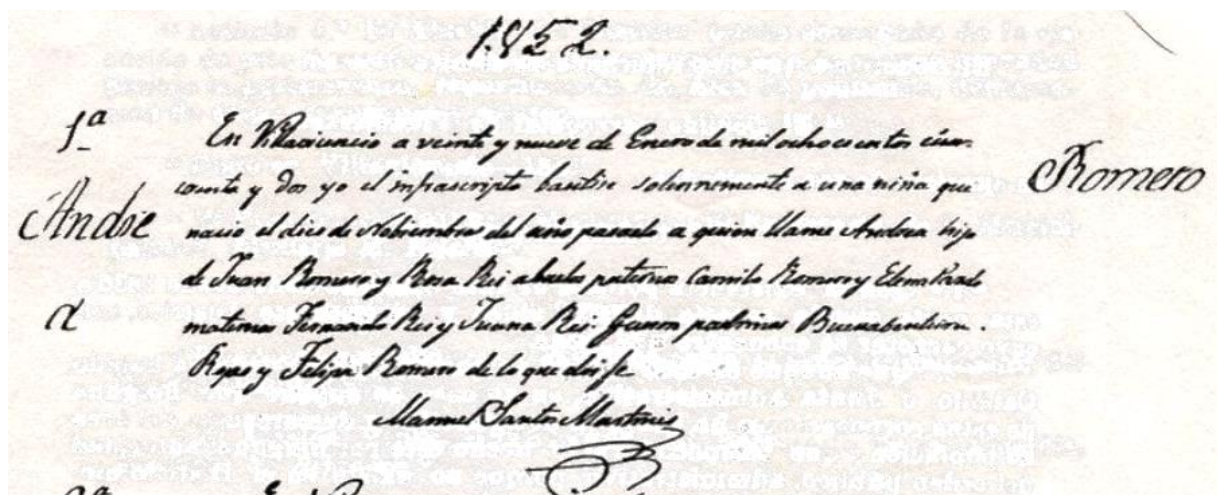 1852.
1ª
Andre
a
Romero
En Villaviencio a veinte y nueve de Enero de mil ochocientos cin-
cuenta y dos yo el infrascripto bautise solennemente a una niña que
nacio el dies de Nobiembre del año pasado a quien llame Andrea hija
de Juan Romero y Rosa Rei abuelos paternos Camilo Romero y Elena Prado
maternos Fernando Rei y Juana Rei. Fueron padrinos Buenabentura
Rojas y Felipa Romero de lo que doi fe
Manuel Santos Martines
2ª